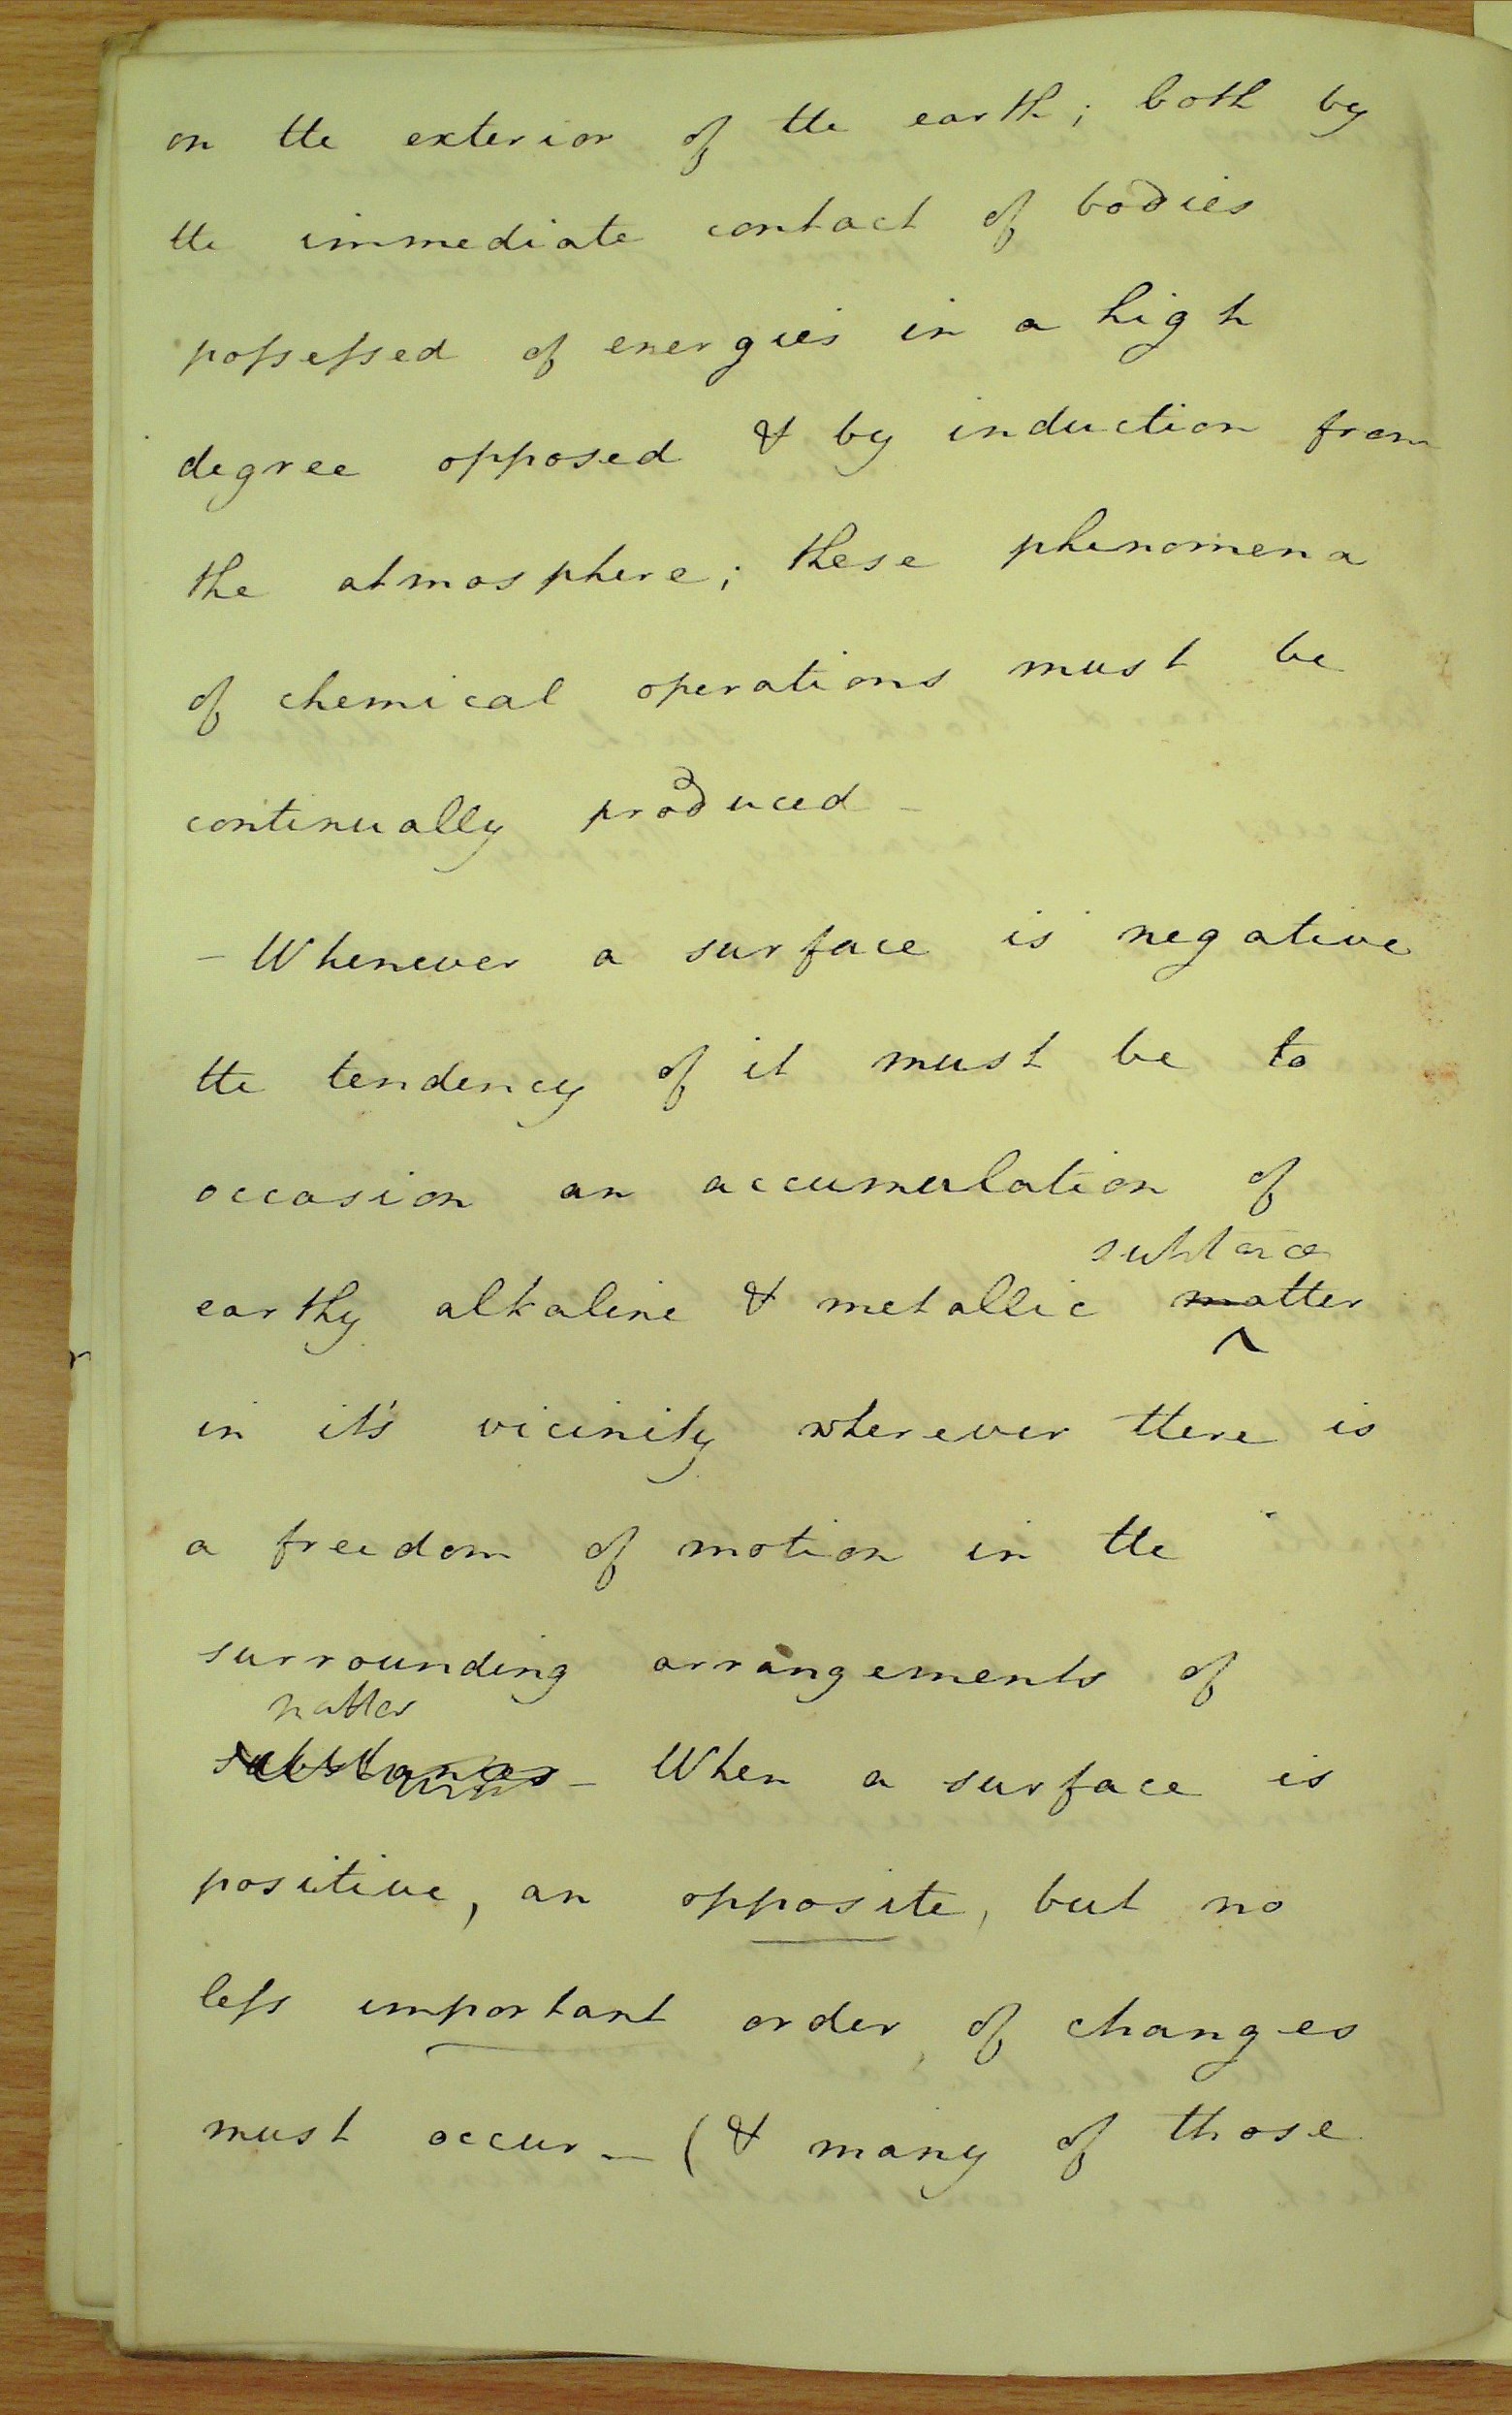 on the exterior of the earth; both by
the immediate contact of bodies
poſseſsed of energies in a high
degree opposed & by induction from
the atmosphere; these phenomena
of chemical operations must be
continually produced –
– Whenever a surface is negative
the tendency of it must be to
occasion an accumulation of
substance
earthy alkaline & metallic matter
in it's vicinity wherever there is
a freedom of motion in the
surrounding arrangements of
matter
substances – When a surface is
positive, an opposite, but no
leſs important order of changes
must occur – (& many of those